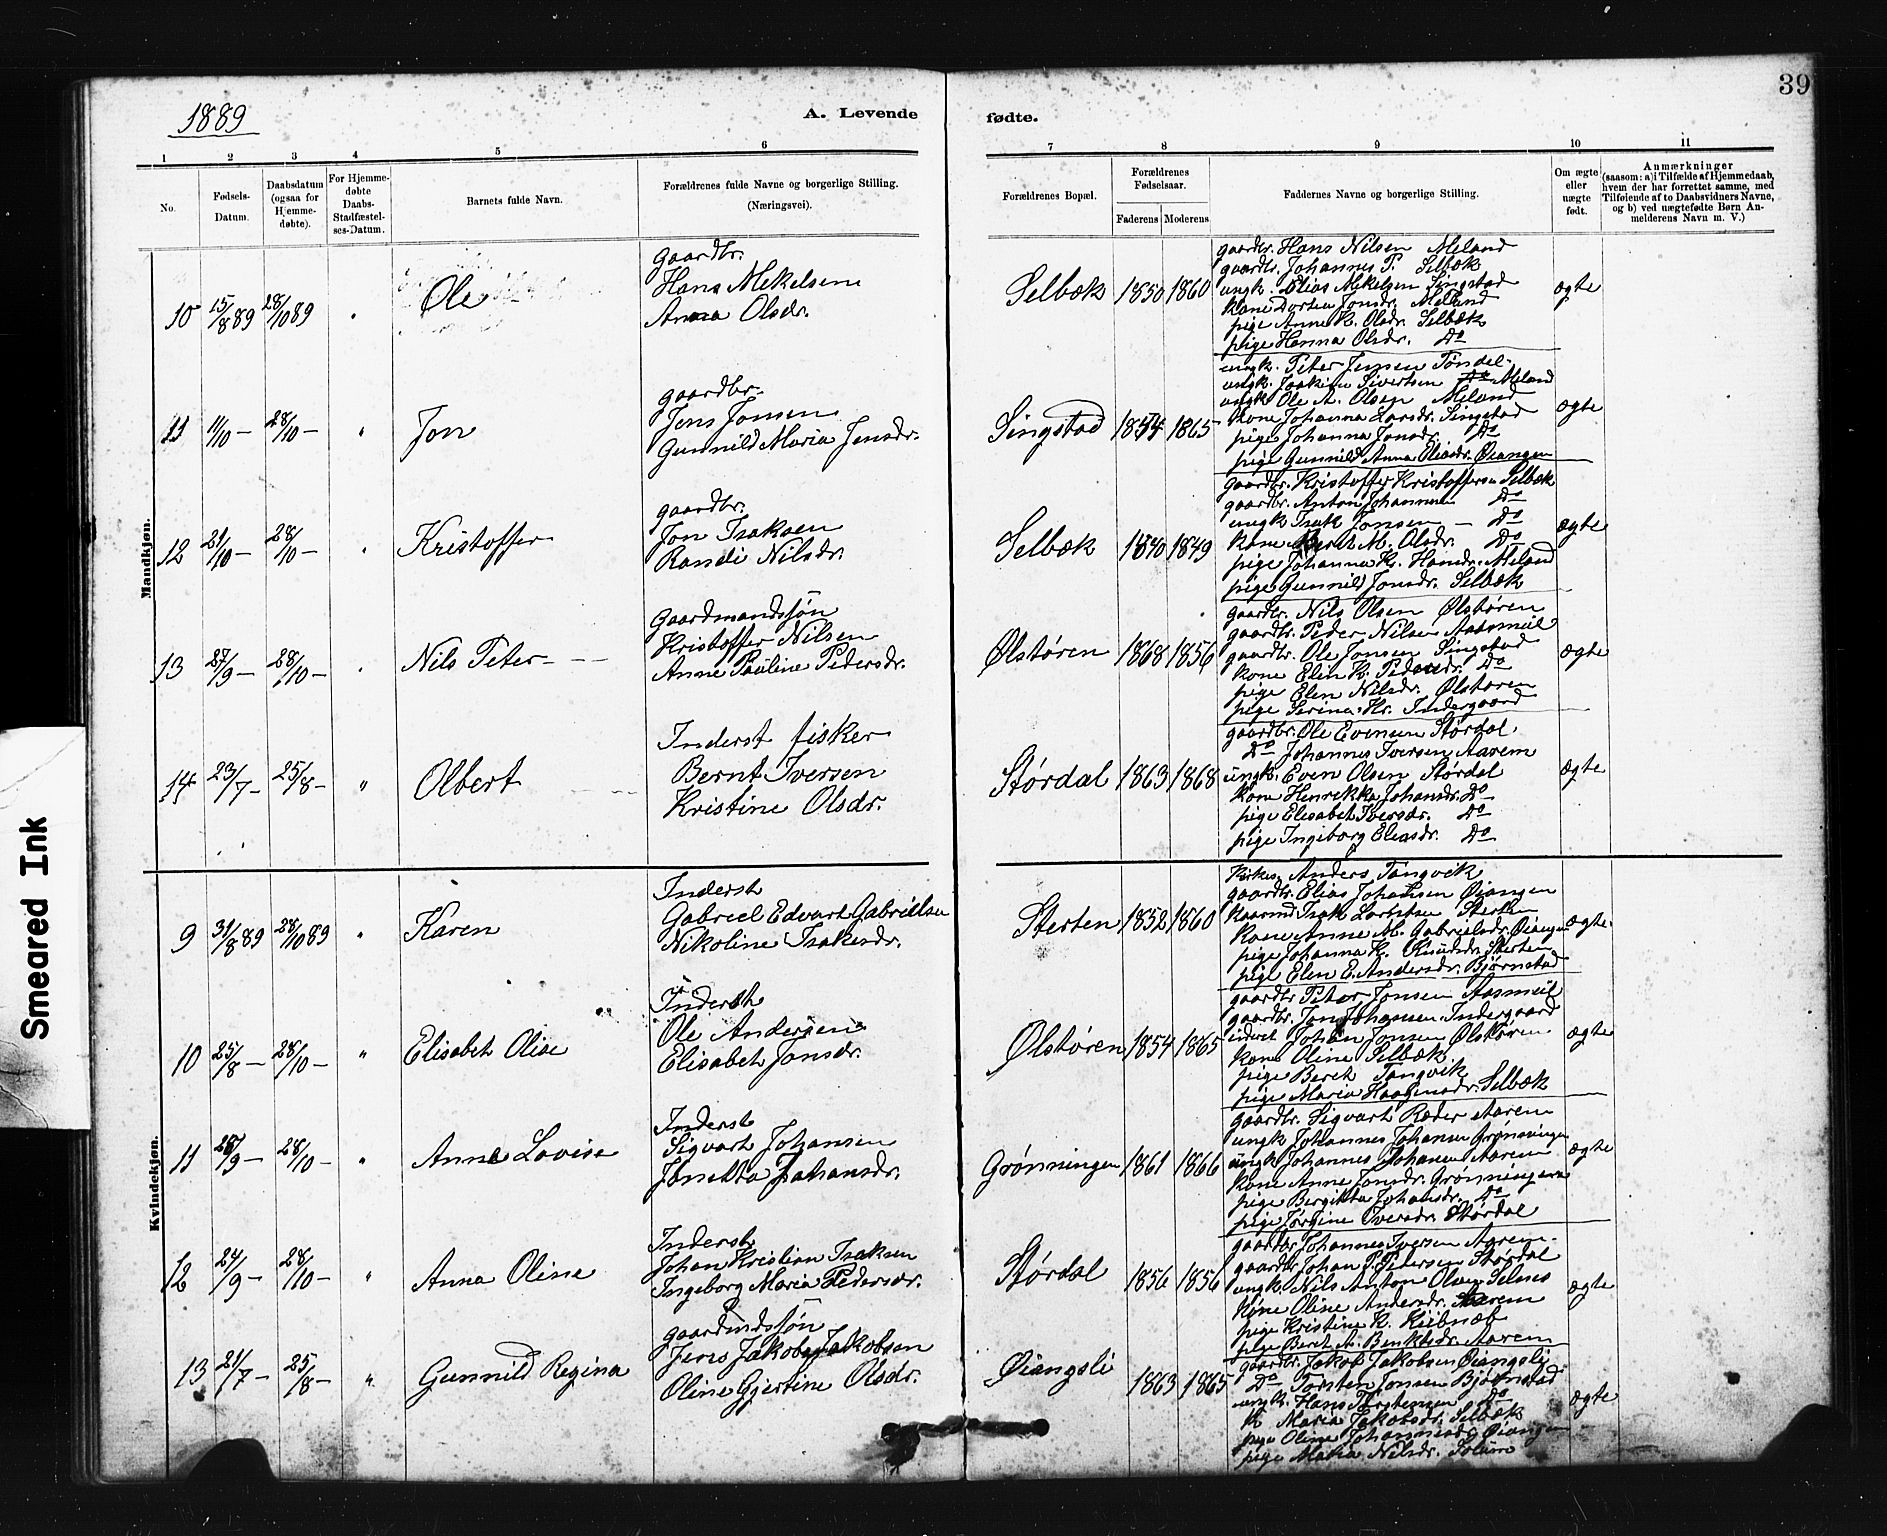 39
1889
A. Levende fødte.
1 2 3 4 5 6 7 8 9 10 11
No.
Fødsels-Datum.
Daabsdatum (ogsaa for Hjemme-døbte).
For Hjemme-døbte Daabs-Stadfæstel-ses-Datum.
Barnets fulde Navn.
Forældrenes fulde Navne og borgerlige Stilling. (Næringsvei).
Forældrenes Bopæl.
Forældrenes Fødselsaar.
Faderens Moderens
Faddernes Navne og borgerlige Stilling.
Om ægte eller uægte født.
Anmærkninger
(saasom: a) i Tilfælde af Hjemmedaab,
hvem der har forrettet samme, med
Tilføiende af to Daabsvidners Navne,
og b) ved uægtefødte Børn An-
melderens Navn m. V.)
Mandkjøn.
10 15/8 89 28/10 89 " Ole
gaardbr.
Hans Mekelsen
Anna Olsdr.
Selbæk 1850 1860
gaardbr. Hans Nilsen Meland
gaardbr. Johannes P. Selbæk
ungk. Elias Mekelsen Singstad
kone Dortea Jonsdr. Meland
pige Anne K. Olsdr. Selbæk
pige Hanna Olsdr. Do
ægte
11 11/10 – 28/10 – " Jon
gaardbr.
Jens Jonsen
Gunnild Maria Jensdr.
Singstad 1854 1865
ungk. Peter Jensen Tøndel
ungk. Joakim Sivertsen Do Meland
ungk. Ole A. Olsen Meland
kone Johanna Larsdr. Singstad
pige Johanna Jonsdr. Do
pige Gunnild Anna Eliasdr. Øiangen
ægte
12 21/10 – 28/10 – " Kristoffer
gaardbr.
Jon Isaksen
Randi Nilsdr.
Selbæk 1840 1849
gaardbr. Kristoffer Kristoffersen Selbæk
gaardbr. Anton Johannesen Do
ungk. Isak Jonsen – Do
kone Beret M. Olsdr. Do
pige Johanna K. Hansdr. Meland
pige Gunnild Jonsdr. Selbæk
ægte
13 27/9 – 28/10 – " Nils Peter
Gaardmandssøn
Kristoffer Nilsen
Anne Pauline Pedersdr.
Ølstøren 1868 1856
gaardbr. Nils Olsen Ølstøren
gaardbr. Peder Nilsen Aasmeil
gaardbr. Ole Jonsen Singstad
kone Elen K. Pedersdr. Do
pige Elen Nilsdr. Ølstøren
pige Serina Hr. Indergaard
ægte
14 23/7 – 25/8 – " Olbert
Inderst fisker
Bernt Iversen
Kristine Olsdr.
Størdal 1863 1868
gaardbr. Ole Evensen Størdal
Do Johannes Iversen Aarem
ungk. Even Olsen Størdal
kone Henrikka Johansdr. Do
pige Elisabet Iversdr. Do
pige Ingeborg Eliasdr. Do
ægte
Kvindekjøn.
9 31/8 89 28/10 89 " Karen
Inderst
Gabriel Edvart Gabrielsen
Nikoline Isaksdr.
Sterten 1852 1860
Kirkes. Anders Tangvik
gaardbr. Elias Johansen Øiangen
kaarmd. Isak Larsen Sterten
kone Anne M. Gabrielsdr. Øiangen
pige Johanna K. Knudsdr. Sterten
pige Elen E. Andersdr. Bjørnstad
ægte
10 25/8 – 28/10 – " Elisabet Olise
Inderst
Ole Andersen
Elisabet Jonsdr.
Ølstøren 1854 1865
gaardbr. Peter Jonsen Aasmeil
gaardbr. Jon Johansen Indergaard
inderst Johan Jonsen Ølstøren
kone Oline Selbæk
pige Beret Tangvik
pige Maria Haagensdr. Selbæk
ægte
11 28/9 – 28/10 – " Anne Lovise
Inderst
Sigvart Johansen
Jonetta Johansdr.
Grønningen 1861 1866
gaardbr. Sigvart Røder Aarem
ungk. Johannes Johansen Grønningen
ungk. Johannes Johansen Aarem
kone Anne Jonsdr. Grønningen
pige Bergitta Johansdr. Do
pige Jørgine Iversdr. Størdal
ægte
12 24/9 – 28/10 – " Anna Oline
Inderst
Johan Kristian Isaksen
Ingeborg Maria Pedersdr.
Størdal 1856 1856
gaardbr. Johannes Iversen Aarem
gaardbr. Johan P. Pedersen Størdal
ungk. Nils Anton Olsen Selnes
kone Oline Andersdr. Aarem
pige Kristine K. Kibnæb
pige Beret A. Benktsdr. Aarem
ægte
13 21/7 – 25/8 – " Gunnild Regina
gaardmdssøn
Jens Jakob Jakobsen
Oline Gjertine Olsdr.
Øiangsli 1863 1865
gaardbr. Jakob Jakobsen Øiangsli
Do Torsten Jonsen Bjørnstad
ungk. Hans Torstensen Do
K Maria Jakobsdr. Selbæk
pige Oline Johannesdr. Øiangen
pige Maria Nilsdr. Solum
ægte
Smeared Ink